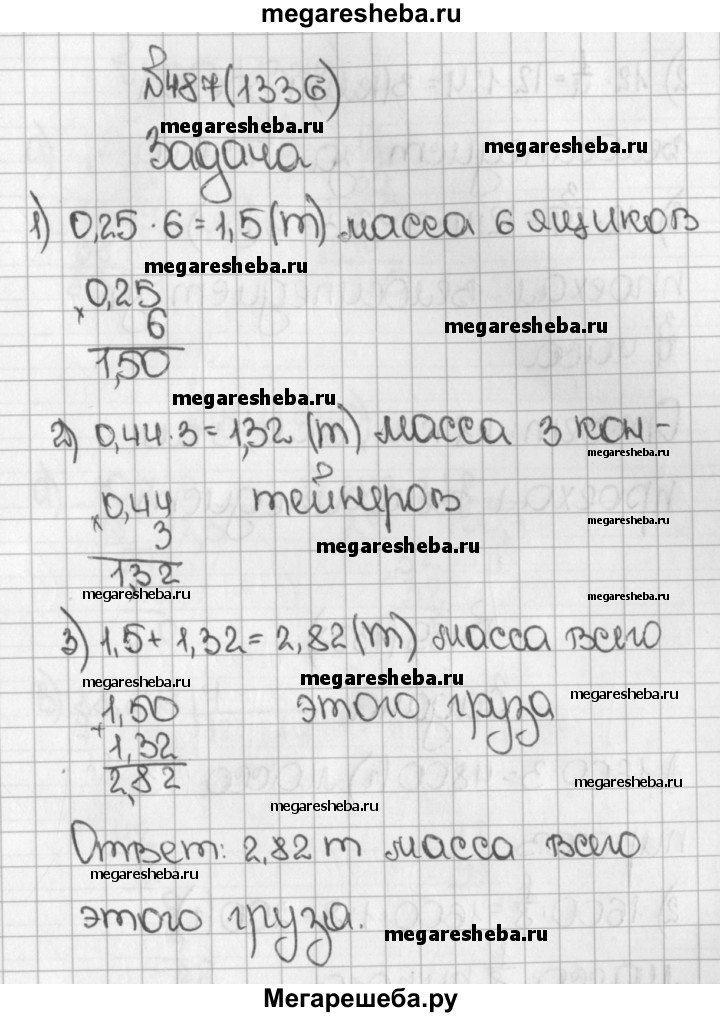 megaresheba.ru
№487(1336)
megaresheba.ru
Задача
megaresheba.ru
1) 0,25 · 6 = 1,5 (т) масса 6 ящиков
megaresheba.ru
× 0,25
6
megaresheba.ru
1,50
megaresheba.ru
2) 0,44 · 3 = 1,32 (т) масса 3 кон-
megaresheba.ru
× 0,44 тейнеров
megaresheba.ru
3
megaresheba.ru
1,32
megaresheba.ru
megaresheba.ru
3) 1,5 + 1,32 = 2,82 (т) масса всего
megaresheba.ru
megaresheba.ru
megaresheba.ru
+ 1,50 этого груза
1,32
2,82
megaresheba.ru
megaresheba.ru
Ответ: 2,82 т масса всего
megaresheba.ru
этого груза.
megaresheba.ru
Мегарешеба.ру